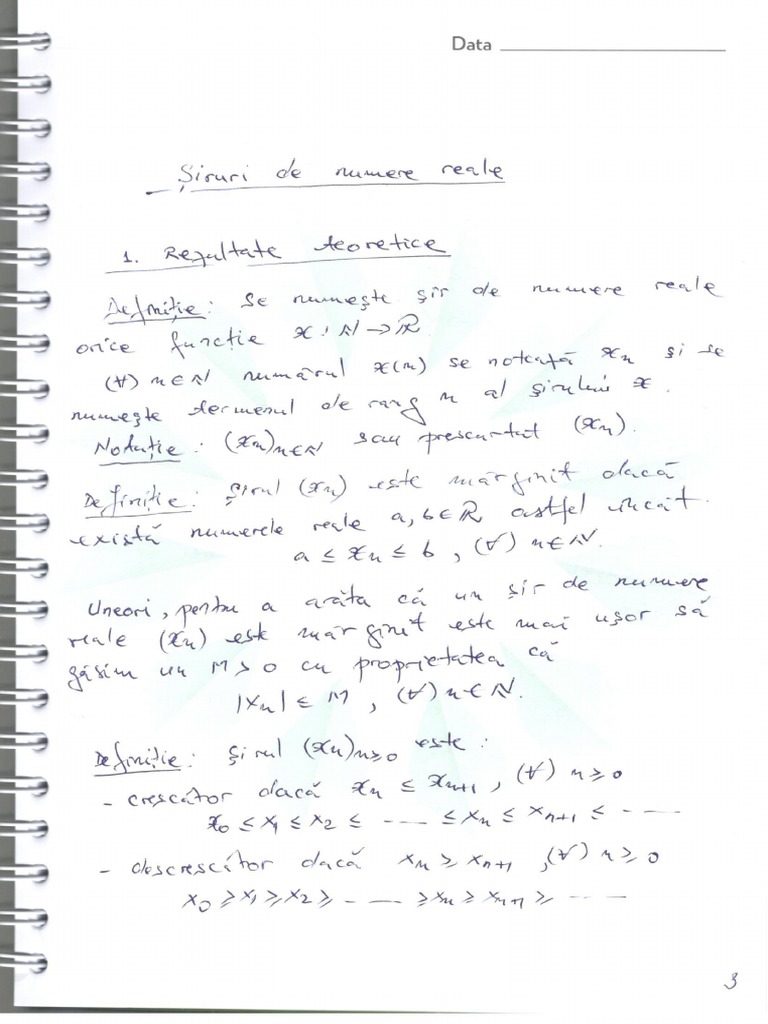 Data
Șiruri de numere reale
1. Rezultate teoretice
Definiție: Se numește șir de numere reale
orice funcție x : ℕ → ℝ
(∀) n ∈ ℕ numărul x(n) se notează xₙ și se
numește termenul de rang n al șirului x.
Notație: (xₙ)ₙ∈ℕ sau prescurtat (xₙ).
Definiție: Șirul (xₙ) este mărginit dacă
există numerele reale a, b ∈ ℝ astfel încât
a ≤ xₙ ≤ b , (∀) n ∈ ℕ.
Uneori, pentru a arăta că un șir de numere
reale (xₙ) este mărginit este mai ușor să
găsim un M > 0 cu proprietatea că
|xₙ| ≤ M , (∀) n ∈ ℕ.
Definiție: Șirul (xₙ)ₙ≥₀ este :
- crescător dacă xₙ ≤ xₙ₊₁ , (∀) n ≥ 0
x₀ ≤ x₁ ≤ x₂ ≤ ----- ≤ xₙ ≤ xₙ₊₁ ≤ -----
- descrescător dacă xₙ ≥ xₙ₊₁ , (∀) n ≥ 0
x₀ ≥ x₁ ≥ x₂ ≥ ----- ≥ xₙ ≥ xₙ₊₁ ≥ -----
3